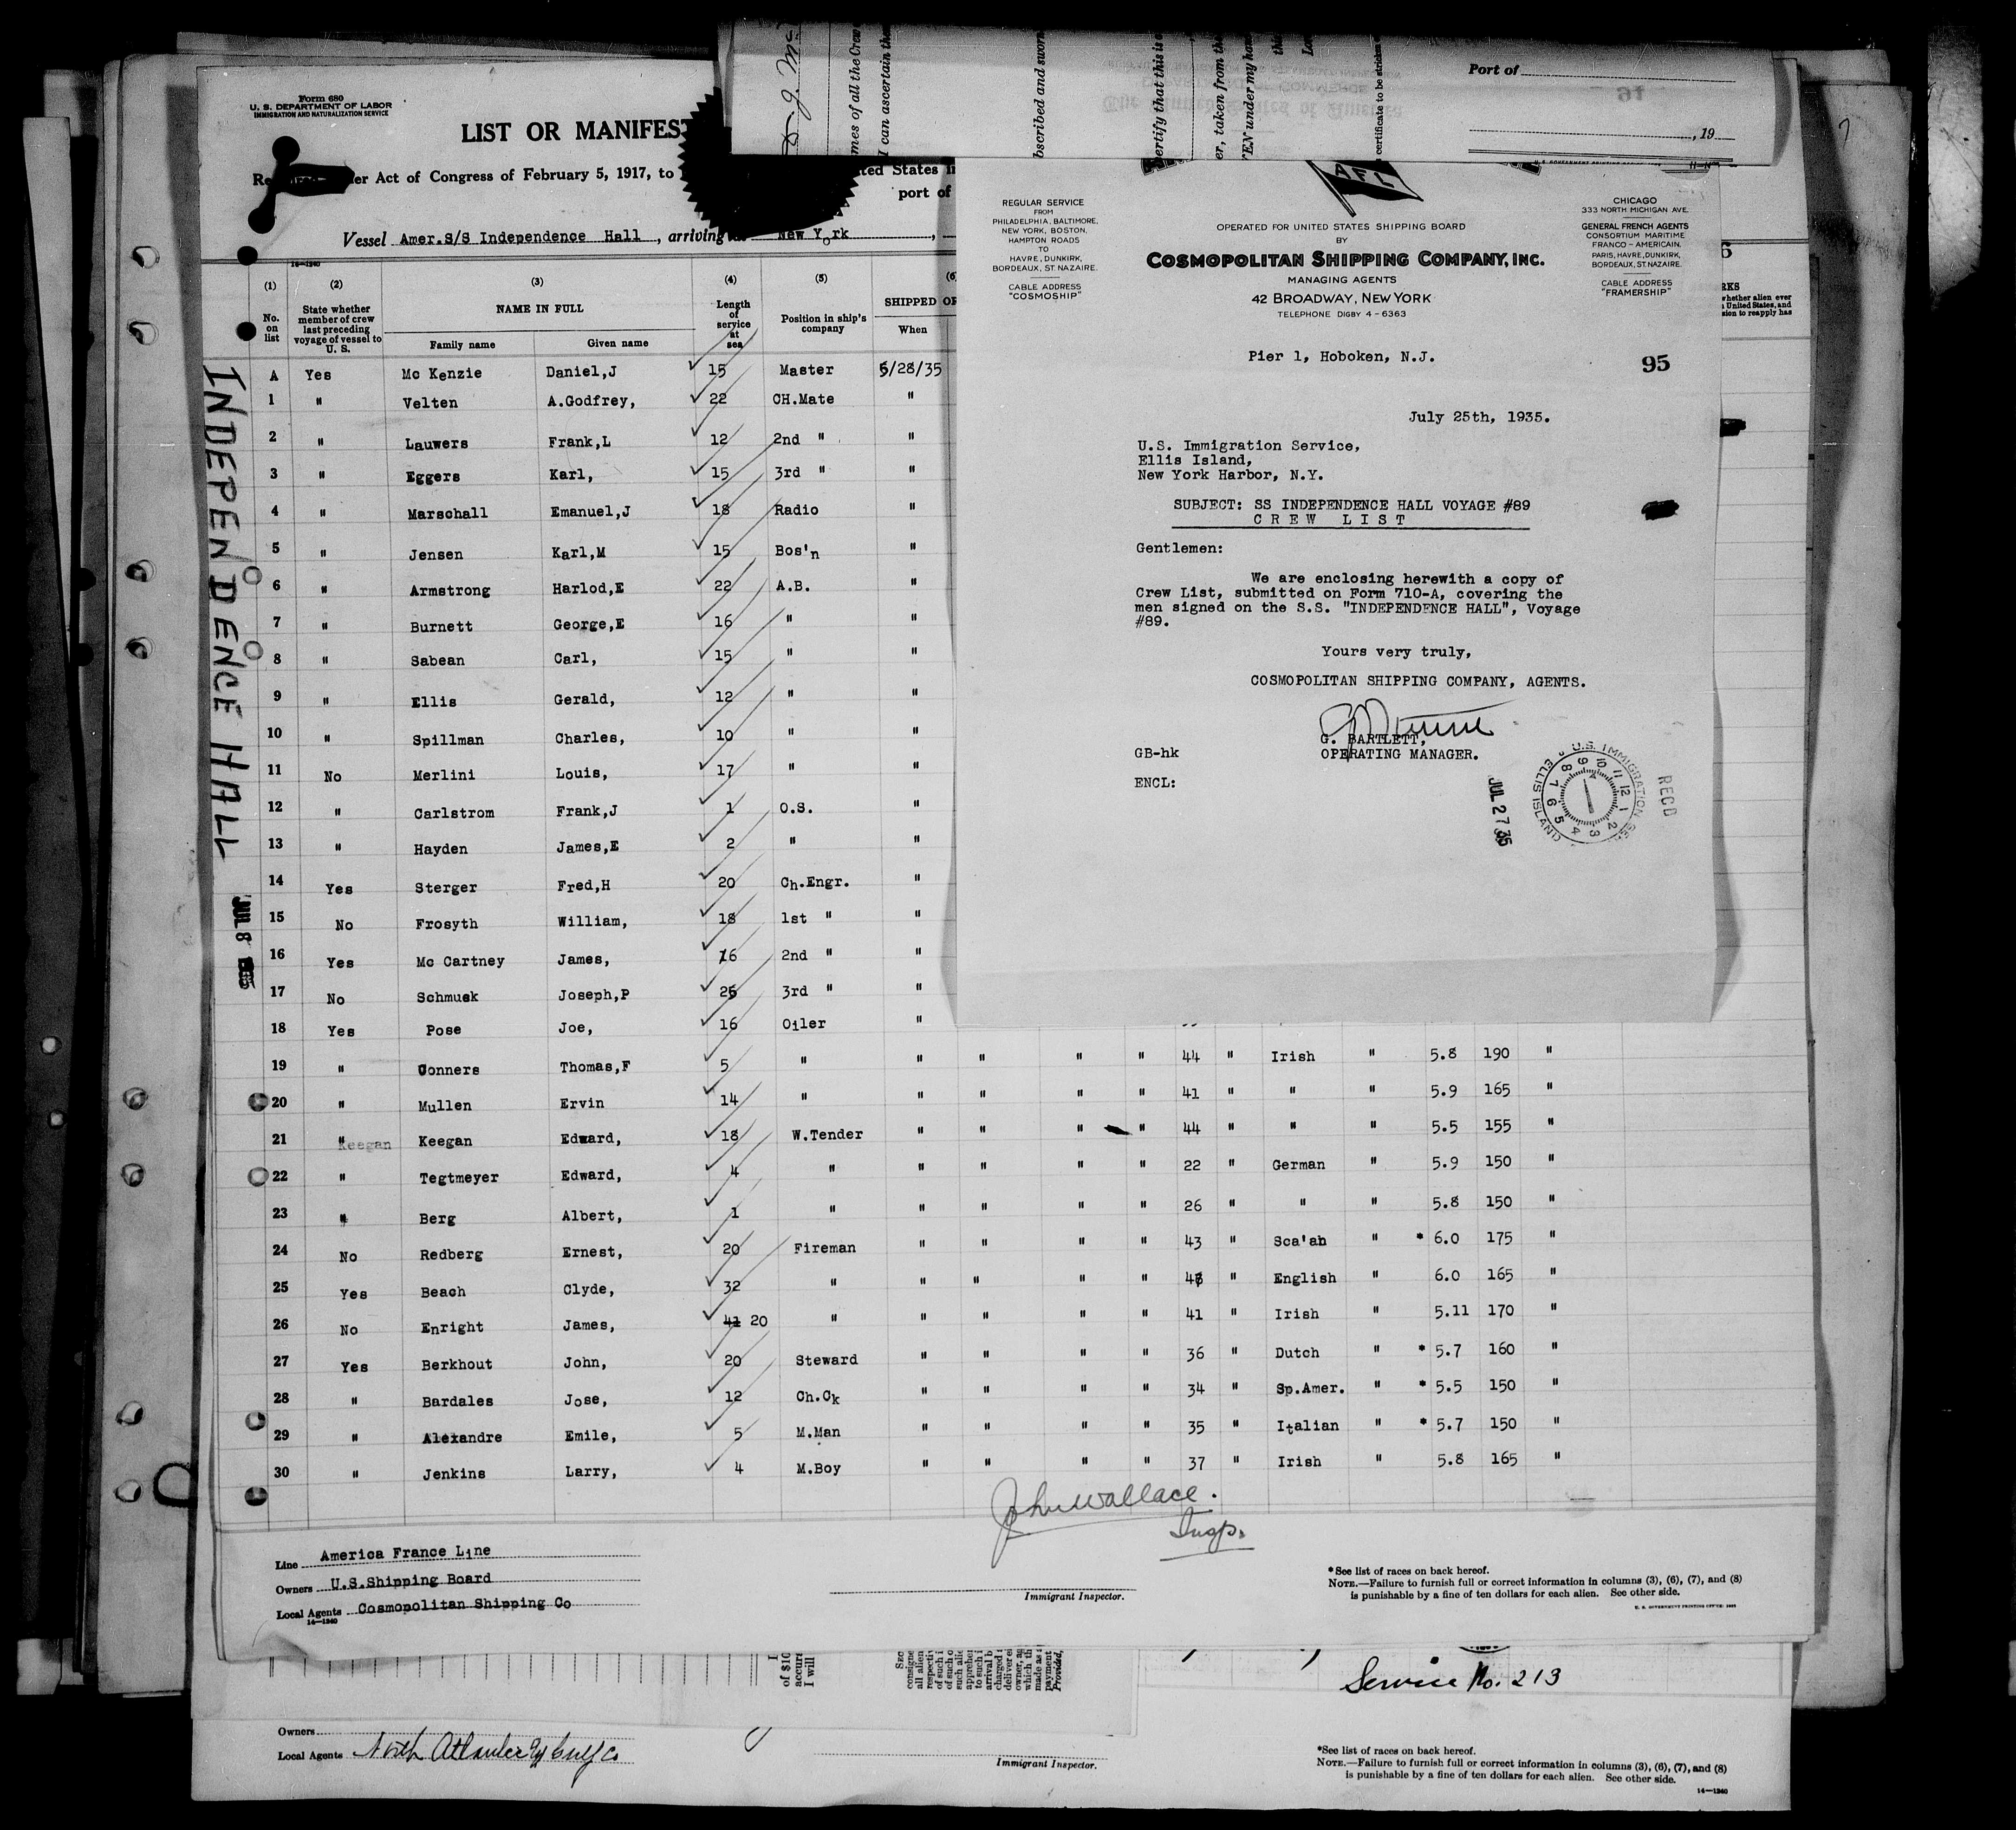 Form 680
U. S. DEPARTMENT OF LABOR
IMMIGRATION AND NATURALIZATION SERVICE
LIST OR MANIFEST
er Act of Congress of February 5, 1917, to
ted States
port of
Vessel Amer.S/S Independence Hall, arriving at New York,
14-1240
(1) (2) (3) (4) (5) (6)
No. on list
State whether member of crew last preceding voyage of vessel to U. S.
NAME IN FULL
Family name Given name
Length of service at sea
Position in ship's company
SHIPPED OR
When
A Yes Mc Kenzie Daniel,J 15 Master 5/28/35
1 " Velten A.Godfrey, 22 CH.Mate "
2 " Lauwers Frank,L 12 2nd " "
3 " Eggers Karl, 15 3rd " "
4 " Marschall Emanuel,J 18 Radio "
5 " Jensen Karl,M 15 Bos'n "
6 " Armstrong Harlod,E 22 A.B. "
7 " Burnett George,E 16 " "
8 " Sabean Carl, 15 " "
9 " Ellis Gerald, 12 " "
10 " Spillman Charles, 10 " "
11 No Merlini Louis, 17 " "
12 " Carlstrom Frank,J 1 O.S. "
13 " Hayden James,E 2 " "
14 Yes Sterger Fred,H 20 Ch.Engr. "
15 No Frosyth William, 18 1st " "
16 Yes Mc Cartney James, 16 2nd " "
17 No Schmuek Joseph,P 25 3rd " "
18 Yes Pose Joe, 16 Oiler "
19 " Conners Thomas,F 5 " " " " " 44 " Irish " 5.8 190 "
20 " Mullen Ervin 14 " " " " " 41 " " " 5.9 165 "
21 " Keegan Keegan Edward, 18 W.Tender " " " " 44 " " " 5.5 155 "
22 " Tegtmeyer Edward, 4 " " " " " 22 " German " 5.9 150 "
23 " Berg Albert, 1 " " " " " 26 " " " 5.8 150 "
24 No Redberg Ernest, 20 Fireman " " " " 43 " Sca'an " * 6.0 175 "
25 Yes Beach Clyde, 32 " " " " " 48 " English " 6.0 165 "
26 No Enright James, 41 20 " " " " " 41 " Irish " 5.11 170 "
27 Yes Berkhout John, 20 Steward " " " " 36 " Dutch " * 5.7 160 "
28 " Bardales Jose, 12 Ch.Ck " " " " 34 " Sp.Amer. " * 5.5 150 "
29 " Alexandre Emile, 5 M.Man " " " " 35 " Italian " * 5.7 150 "
30 " Jenkins Larry, 4 M.Boy " " " " 37 " Irish " 5.8 165 "
INDEPENDENCE HALL
JUL 8 1935
John Wallace.
Insp.
Line America France Line
Owners U.S.Shipping Board
Local Agents Cosmopolitan Shipping Co
14-1240
Immigrant Inspector.
*See list of races on back hereof.
NOTE.—Failure to furnish full or correct information in columns (3), (6), (7), and (8)
is punishable by a fine of ten dollars for each alien. See other side.
D. J. Mc
mes of all the Crew
I can ascertain the
bscribed and sworn
ertify that this is
er, taken from the
TEN under my hand
certificate to be stricken
Port of
, 19
91
AFL
REGULAR SERVICE
FROM
PHILADELPHIA, BALTIMORE,
NEW YORK, BOSTON,
HAMPTON ROADS
TO
HAVRE, DUNKIRK,
BORDEAUX, ST. NAZAIRE.
CABLE ADDRESS
"COSMOSHIP"
OPERATED FOR UNITED STATES SHIPPING BOARD
BY
COSMOPOLITAN SHIPPING COMPANY, INC.
MANAGING AGENTS
42 BROADWAY, NEW YORK
TELEPHONE DIGBY 4-6363
CHICAGO
333 NORTH MICHIGAN AVE.
GENERAL FRENCH AGENTS
CONSORTIUM MARITIME
FRANCO-AMERICAIN,
PARIS, HAVRE, DUNKIRK,
BORDEAUX, ST. NAZAIRE.
CABLE ADDRESS
"FRAMERSHIP"
Pier 1, Hoboken, N.J.
95
July 25th, 1935.
U.S. Immigration Service,
Ellis Island,
New York Harbor, N.Y.
SUBJECT: SS INDEPENDENCE HALL VOYAGE #89
CREW LIST
Gentlemen:
We are enclosing herewith a copy of
Crew List, submitted on Form 710-A, covering the
men signed on the S.S. "INDEPENDENCE HALL", Voyage
#89.
Yours very truly,
COSMOPOLITAN SHIPPING COMPANY, AGENTS.
G. BARTLETT,
GB-hk OPERATING MANAGER.
ENCL:
JUL 27 35
U.S. IMMIGRATION SER
ELLIS ISLAND
RECD
RKS
whether alien ever
United States, and
sion to reapply has
of $10
accura
I will
Service No. 213
Owners
Local Agents North Atlantic & Gulf Co
Immigrant Inspector.
*See list of races on back hereof.
NOTE.—Failure to furnish full or correct information in columns (3), (6), (7), and (8)
is punishable by a fine of ten dollars for each alien. See other side.
14-1240